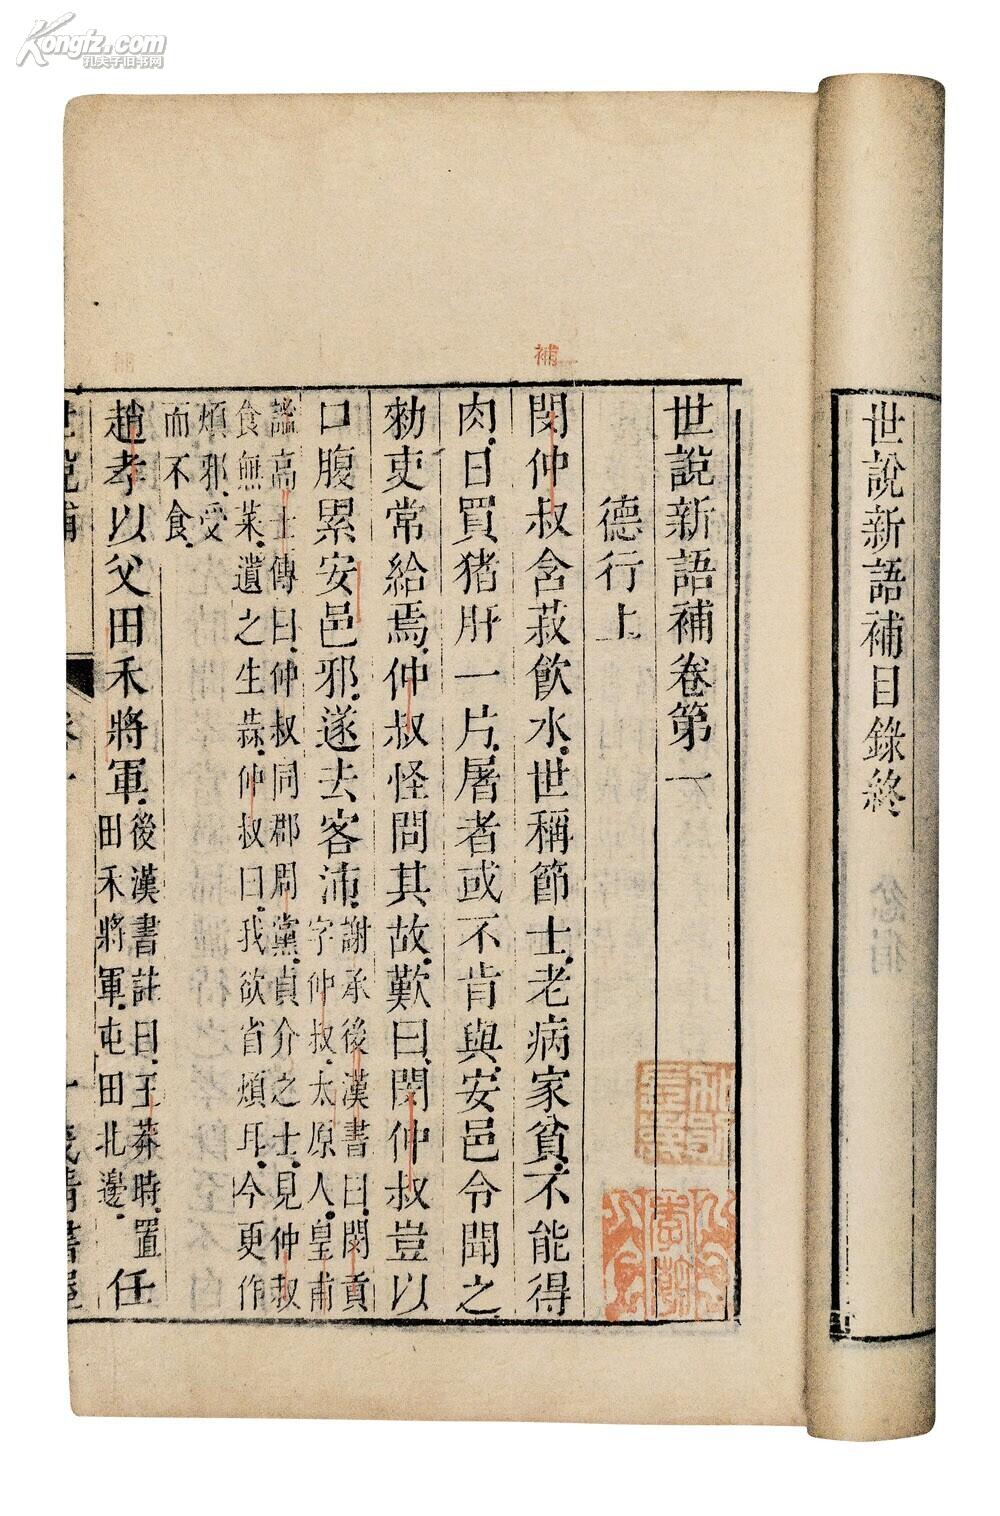 Kongfz.com
孔夫子旧书网
世說新語補目錄終
補
世說新語補卷第一
德行上
閔仲叔含菽飲水世稱節士老病家貧不能得
肉日買猪肝一片屠者或不肯與安邑令聞之
勑吏常給焉仲叔怪問其故歎曰閔仲叔豈以
口腹累安邑邪遂去客沛
謝承後漢書曰閔貢
字仲叔太原人皇甫
謐高士傳曰仲叔同郡周黨貞介之士見仲叔
食無菜遺之生蒜仲叔曰我欲省煩耳今更作
煩邪受
而不食
趙孝以父田禾將軍
後漢書註曰王莽時置
田禾將軍屯田北邊
任
世說補
卷一
一
茂清書屋